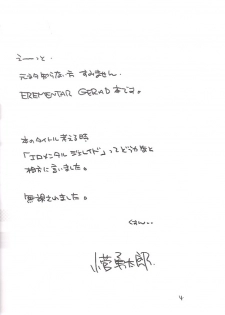 えーっと。
元ネタ知らない方 すみません。
EREMENTAR GERAD 本です。
本のタイトル考える時
「エロメンタル ジェレイド」ってどうかなと
相方に言いました。
無視されました。
くすん…
4